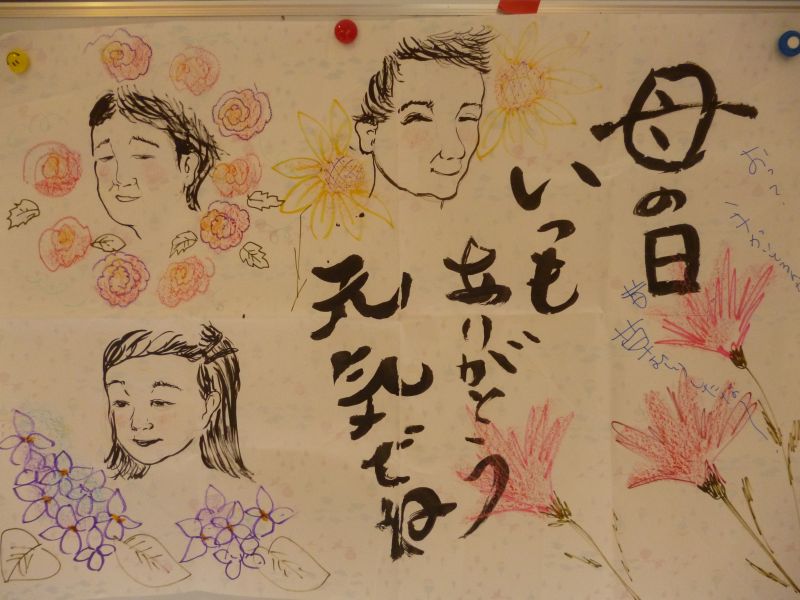 母の日
いつも
ありがとう
元気でね